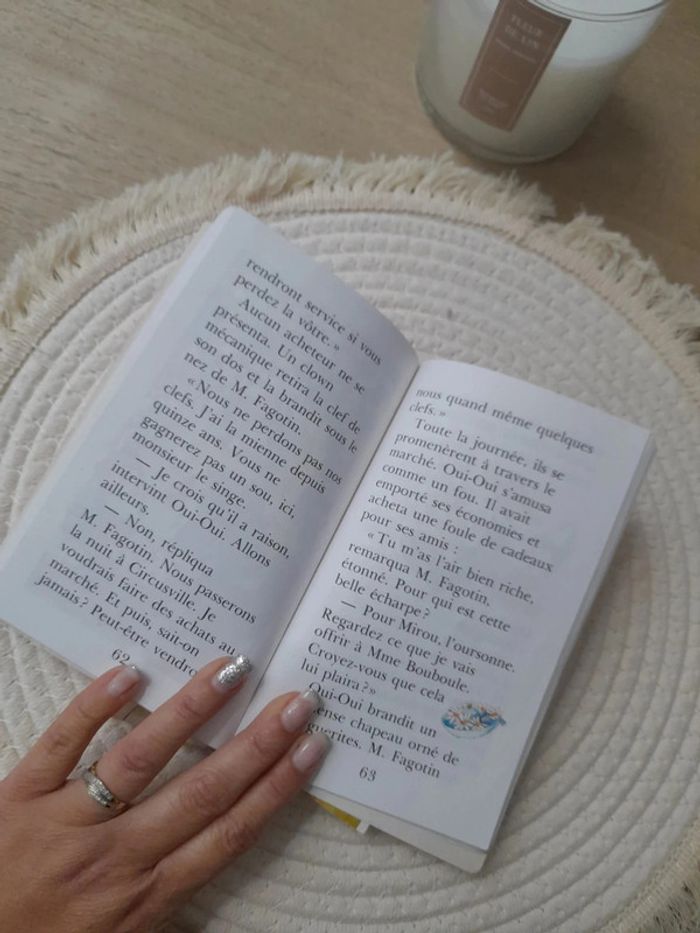 FLEUR
DE LIN
rendront service si vous
perdez la vôtre. »
Aucun acheteur ne se
présenta. Un clown
mécanique retira la clef de
son dos et la brandit sous le
nez de M. Fagotin.
« Nous ne perdons pas nos
clefs. J'ai la mienne depuis
quinze ans. Vous ne
gagnerez pas un sou, ici,
monsieur le singe.
— Je crois qu'il a raison,
intervint Oui-Oui. Allons
ailleurs.
— Non, répliqua
M. Fagotin. Nous passerons
la nuit à Circusville. Je
voudrais faire des achats au
marché. Et puis, sait-on
jamais ? Peut-être vendro
62
nous quand même quelques
clefs. »
Toute la journée, ils se
promenèrent à travers le
marché. Oui-Oui s'amusa
comme un fou. Il avait
emporté ses économies et
acheta une foule de cadeaux
pour ses amis :
« Tu m'as l'air bien riche,
remarqua M. Fagotin,
étonné. Pour qui est cette
belle écharpe ?
— Pour Mirou, l'oursonne.
Regardez ce que je vais
offrir à Mme Bouboule.
Croyez-vous que cela
lui plaira ? »
Oui-Oui brandit un
ense chapeau orné de
guerites. M. Fagotin
63